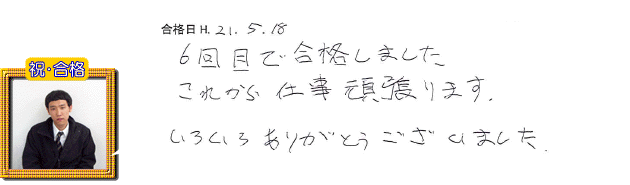 合格日 H. 21. 5. 18
6回目で合格しました
これから仕事頑張ります.
祝・合格
いろいろありがとうございました.